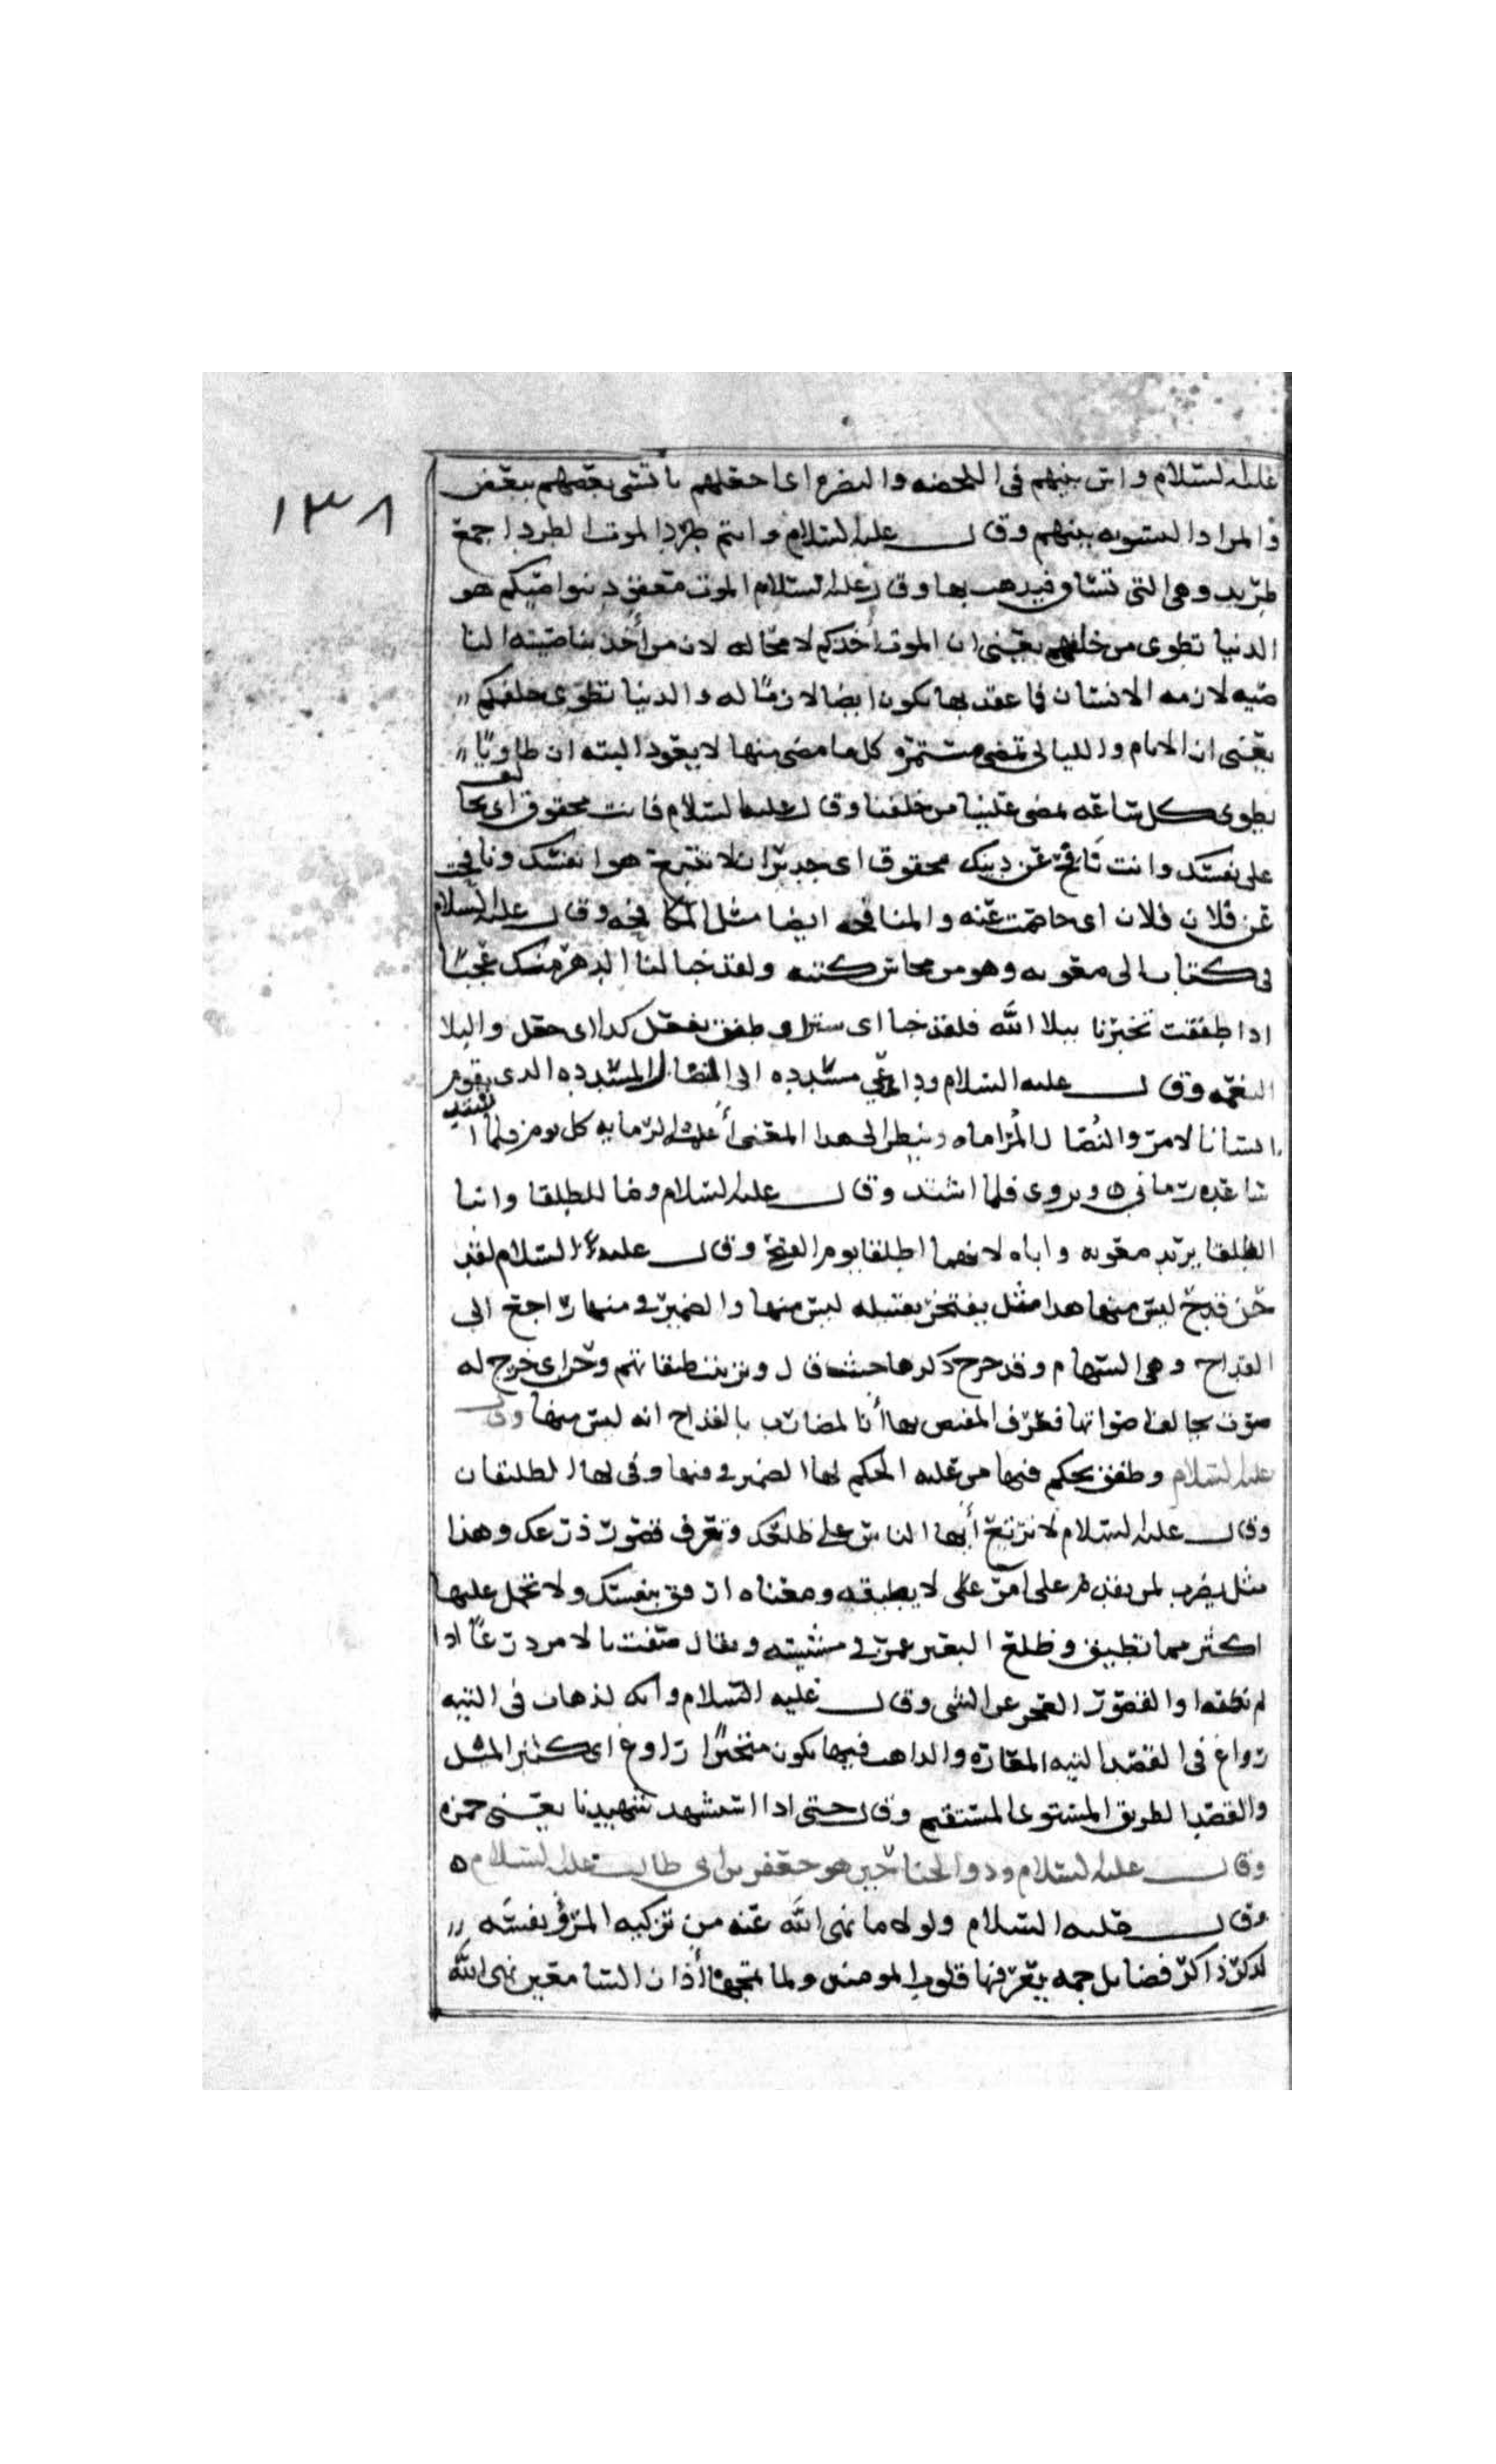 ١٣٨
عليه السلام واس بينهم في اللحظه والنظره اى اجعلهم ياتسى بعضهم ببعض
والمراد التسويه بينهم وقال عليه السلام وانتم طرد الموت الطرد جمع
طريد وهي التي تساق فيذهب بها وقال عليه السلام الموت معقود بنواصيكم هو
الدنيا تطوى من خلفهم يعني ان الموت أخذكم لا محاله لان من أخذ بناصيته النا
صيه لازمه الانسان فما عقد بها يكون ايضا لازما له والدنيا تطوى خلفكم
يعني ان الايام والليالي تمضي مستمر وكل ما مضى منها لا يعود البته ان طاويا
يطوى كل ساعه تمضى علينا من خلفنا وقال عليه السلام فانت محقوق اى
على نفسك وانت نافح عن دينك محقوق اى جدير ان لا تتبع هوا نفسك ونافحت
عن فلان فلان اى خاصمت عنه والمنافحه ايضا مثل المكافحه وقال عليه السلام
في كتاب الى معويه وهو من محاسن كتبه ولقد خبا لنا الدهر منك عجبًا
اذا طفقت تخبرنا ببلا الله فلقد خبا اى ستر وطفق يفعل كذا اى جعل والبلا
النعمه وقال عليه السلام وداعي مسدده الى النضال المسدده الذى يقوم
الستانا لامر والنضال المراماه وينظر الى هذا المعنى أعلمه الرمايه كل يوم فلما استد
ساعده رماني ه ويروى فلما اشتد وقال عليه السلام وما للطلقا وابنا
الطلقا يريد معويه واباه لانهما اطلقا يوم الفتح وقال عليه السلام لقد
حن قدح ليس منها هذا مثل يفتخر بقبيله ليس منها والضمير في منها راجع الى
القداح وهي السهام وقد جرح ذكرها حيث قال وترتيب طبقاتهم وحن اى خرج له
صوت يخالف اصواتها فعرف المفيض بها أنا لمضارب بالقداح انه ليس منها وقال
عليه السلام وطفق يحكم فيها من عليه الحكم لها الضمير في فيها وفي لها للطبقات
وقال عليه السلام لا تربع أيها الناس على ظلعك وتعرف قصور ذرعك وهذا
مثل يضرب لمن يقدم على امر على لا يطيقه ومعناه ارفق بنفسك ولا تحمل عليها
اكثر مما تطيق وظلع البعير غمز في مشيته ويقال ضقت بالامر ذرعًا اذا
لم تطقه والقصور العجز عن الشى وقال عليه السلام وانك لذهاب في التيه
رواغ في القصد التيه المفازه والذاهب فيها يكون متحيرًا رواغ اى كثير الميل
والقصد الطريق المستوى المستقيم وقال حتى اذا استشهد شهيدنا يعني حمزه
وقال عليه السلام وذو الجناحين هو جعفر بن ابي طالب عليه السلام ه
وقال عليه السلام ولولا ما نهى الله عنه من تزكيه المرؤ نفسه
لذكر ذاكر فضايل جمه يعرفها قلوب المومنين ولا تمجها أذان السامعين نهى الله